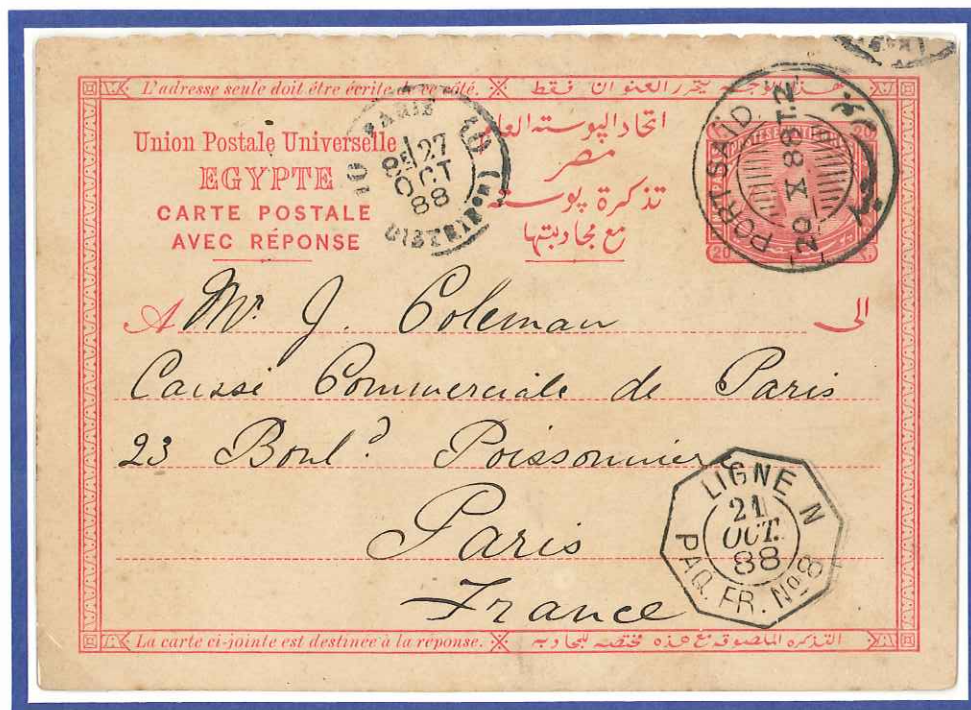 L'adresse seule doit être écrite de ce côté.
هذا الوجه يحرر العنوان فقط
Union Postale Universelle
EGYPTE
CARTE POSTALE
AVEC RÉPONSE
اتحاد البوسته العام
مصر
تذكرة بوسته
مع مجاوبتها
PARIS
8E 27
OCT
88
DISTRIBUTION
10
10
PORT SAID
20 X 88 T.2
20
20
A Mr J. Coleman
الى
Caisse Commerciale de Paris
23 Boul.d Poissonnière
Paris
France
LIGNE N
21
OCT.
88
PAQ. FR. No 8
La carte ci-jointe est destinée à la réponse.
التذكره الملصوقه مع هذه مختصه للمجاوبه